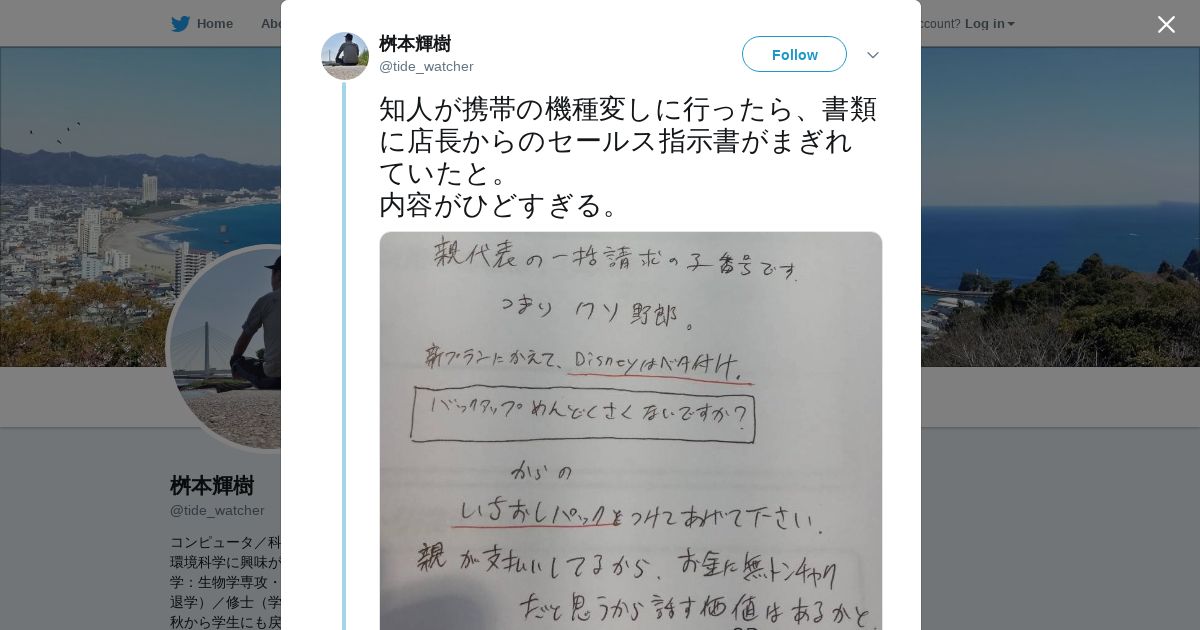 Home
Abo
count? Log in
桝本輝樹
@tide_watcher
Follow
知人が携帯の機種変しに行ったら、書類
に店長からのセールス指示書がまぎれ
ていたと。
内容がひどすぎる。
親代表の一括請求の子番号です
つまり クソ野郎。
新プランにかえて、Disneyはベタ付け。
バックアップめんどくさくないですか?
からの
いちおしパックをつけてあげて下さい.
親が支払いしてるから、お金に無トンチャク
だと思うから話す価値はあるかと.
桝本輝樹
@tide_watcher
コンピュータ／科
環境科学に興味が
学：生物学専攻・
退学）／修士（学
秋から学生にも戻